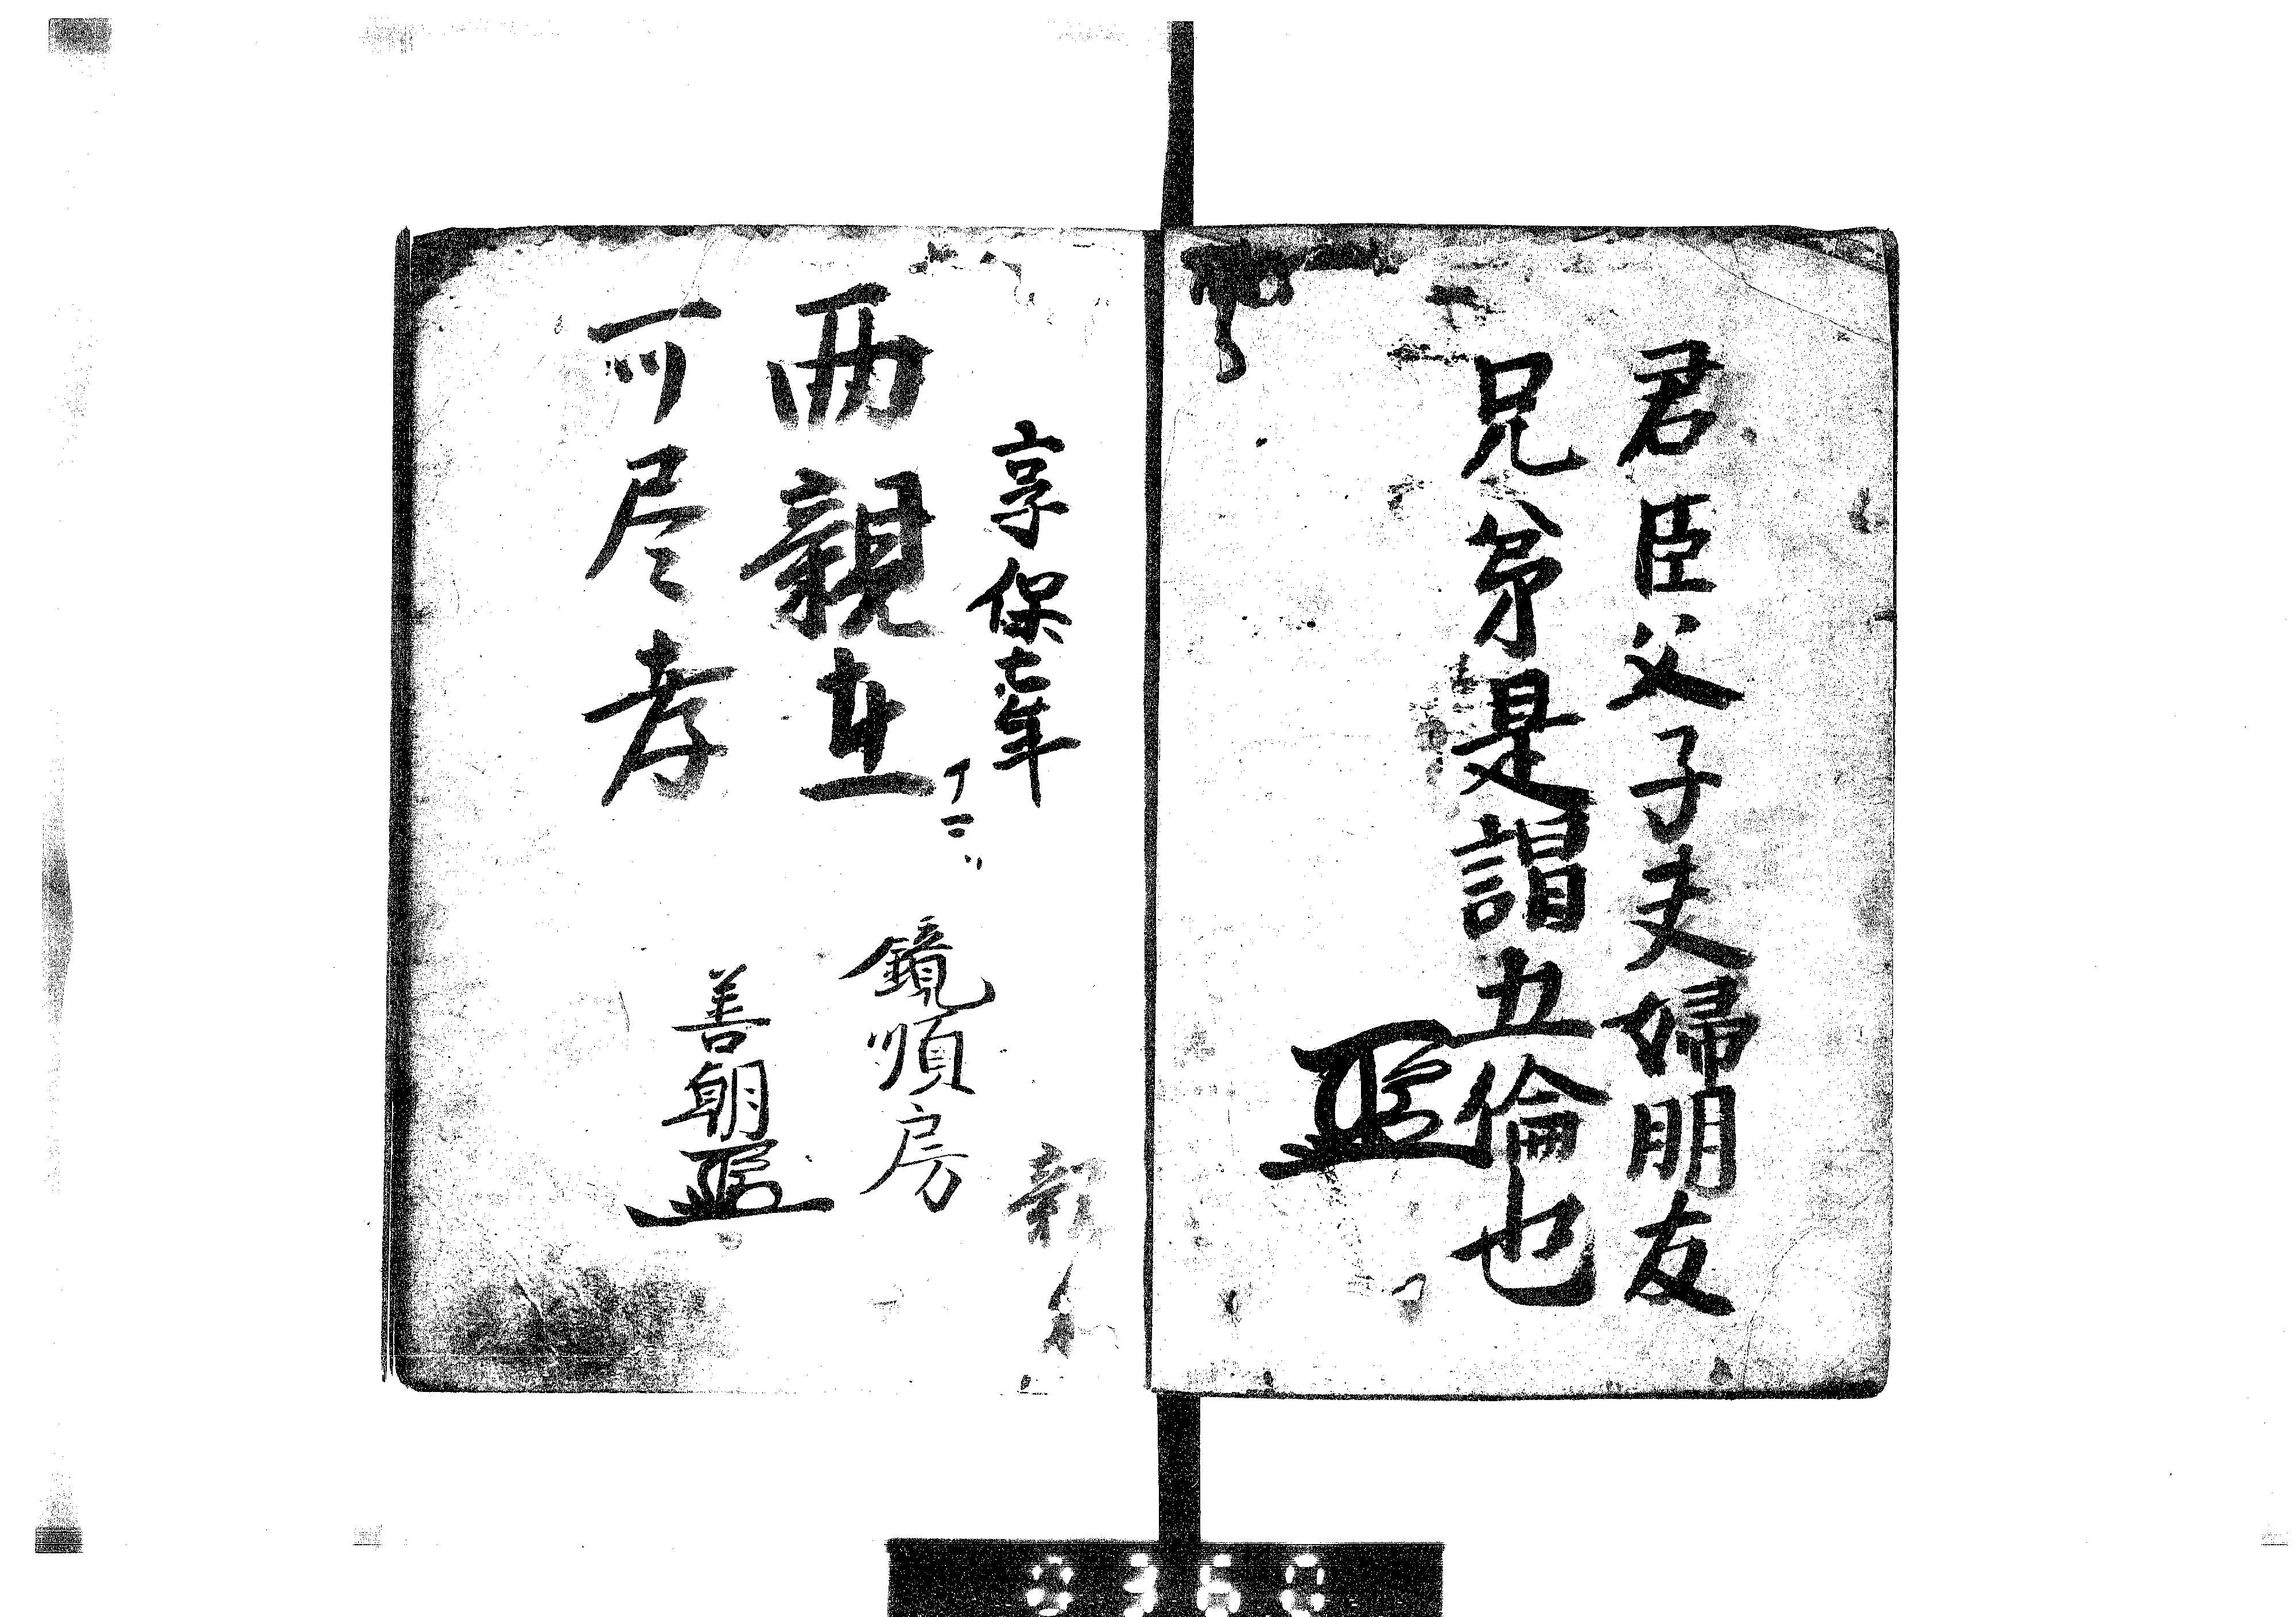 君臣父子夫婦朋友
兄弟是謂五倫也
享保七年
両親在
可尽孝
鏡順房
善朝
親
0360